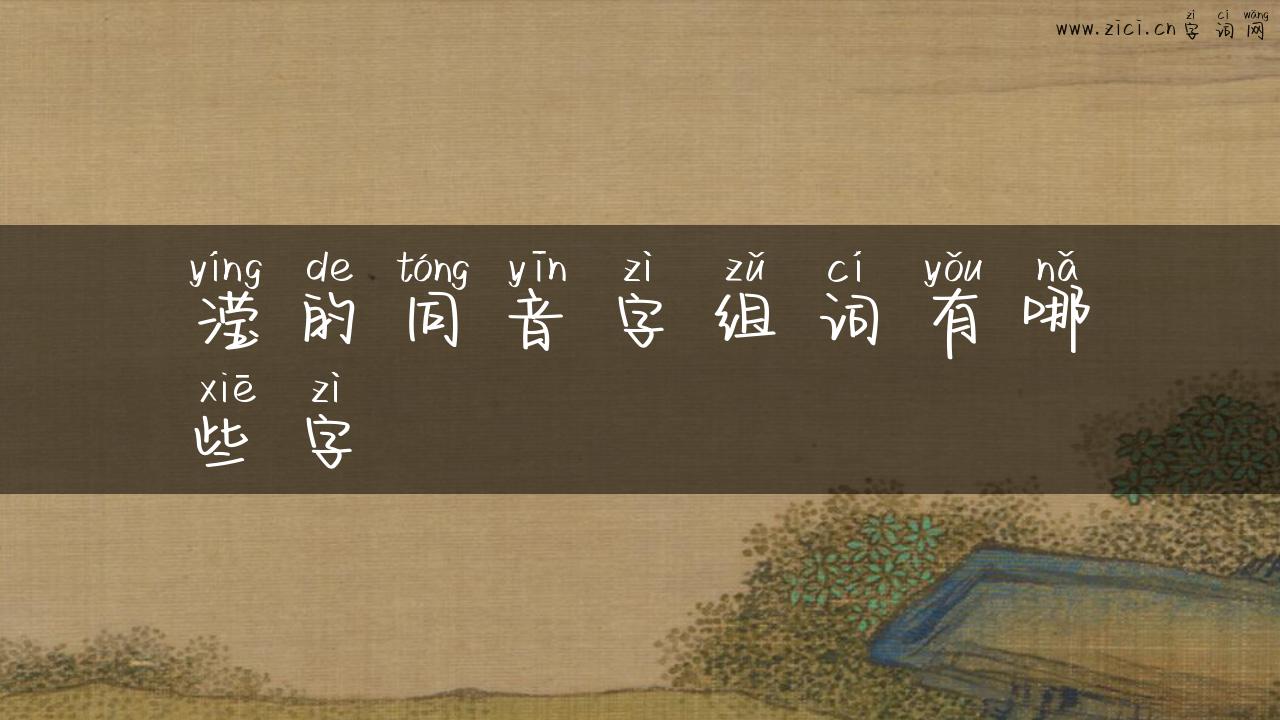 zì cí wǎng
www.zici.cn 字词网
yíng de tóng yīn zì zǔ cí yǒu nǎ
滢的同音字组词有哪
xiē zì
些字